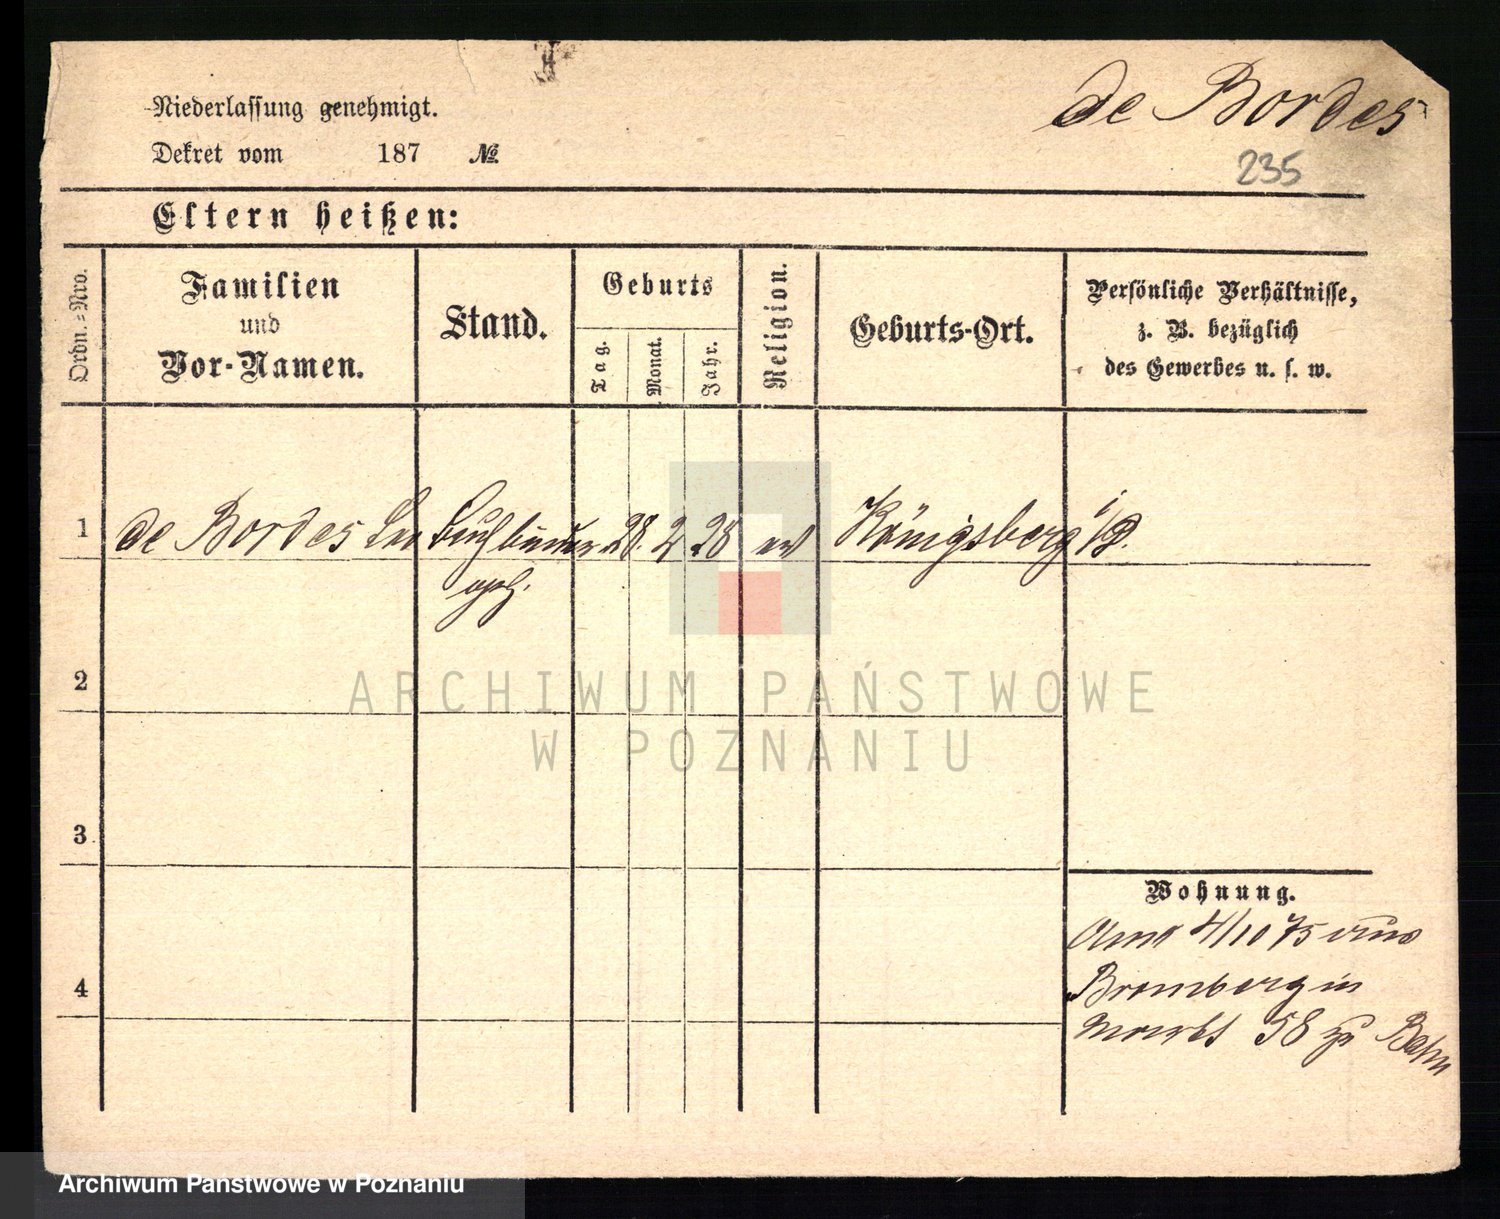 de Bordes
235
Niederlassung genehmigt.
Dekret vom 187 №
Eltern heißen:
Ordn.-Nro.
Familien
und
Vor-Namen.
Stand.
Geburts
Tag.
Monat.
Jahr.
Religion.
Geburts-Ort.
Persönliche Verhältnisse,
z. B. bezüglich
des Gewerbes u. s. w.
1 de Bordes Leo Buchbinder 28. 2 28 ev Königsberg i/P.
2
3
4
Wohnung.
4/10 75 aus
Bromberg in
Markt 58 zu Bahn
ARCHIWUM PAŃSTWOWE
W POZNANIU
Archiwum Państwowe w Poznaniu